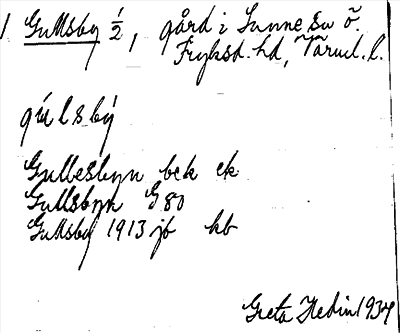 1 Gullsby 1/2, gård i Sunne sn ö.
Fryksd. hd, Värml. l.
gúlsbý
Gullesbyn bck ek
Gullsbyn G 80
Gullsby 1913 jb kb
Greta Hedin 1934